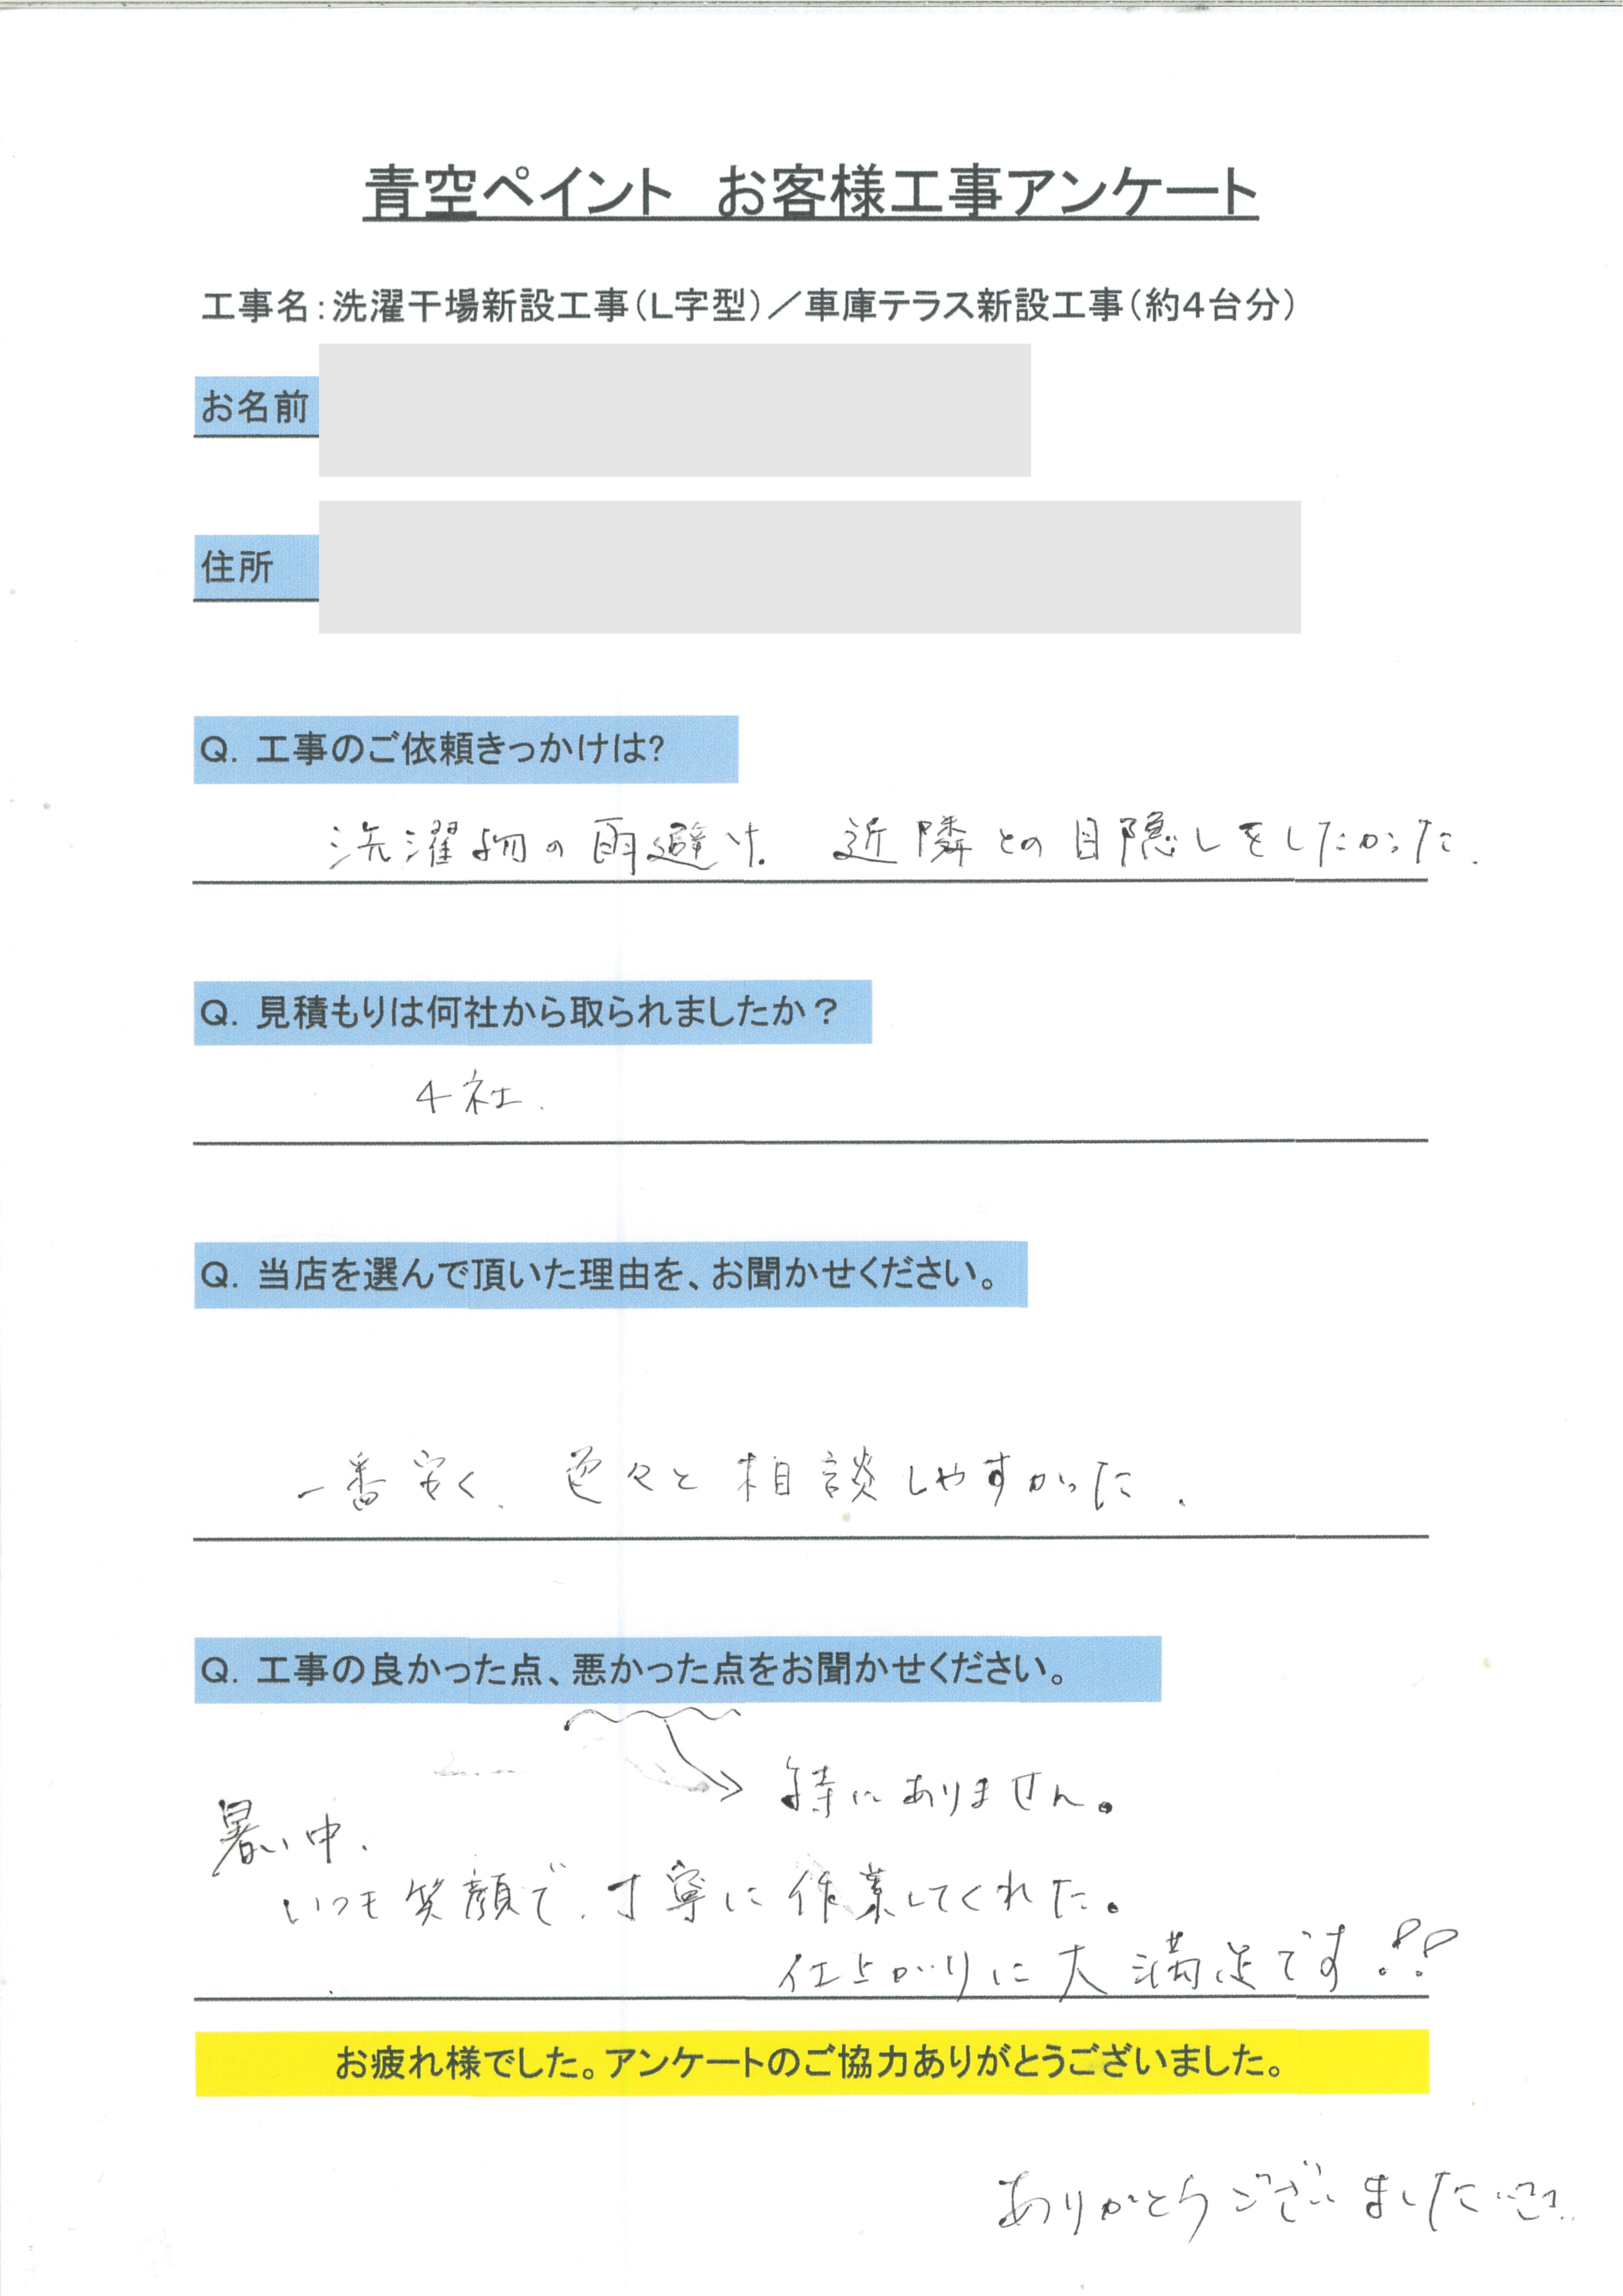 青空ペイント　お客様工事アンケート
工事名：洗濯干場新設工事（L字型）／車庫テラス新設工事（約4台分）
お名前
住所
Q. 工事のご依頼きっかけは？
洗濯物の雨避け、近隣との目隠しをしたかった．
Q. 見積もりは何社から取られましたか？
4社．
Q. 当店を選んで頂いた理由を、お聞かせください。
一番安く、色々と相談しやすかった．
Q. 工事の良かった点、悪かった点をお聞かせください。
特にありません。
暑い中、
いつも笑顔で、丁寧に作業してくれた。
仕上がりに大満足です!!
お疲れ様でした。アンケートのご協力ありがとうございました。
ありがとうございました